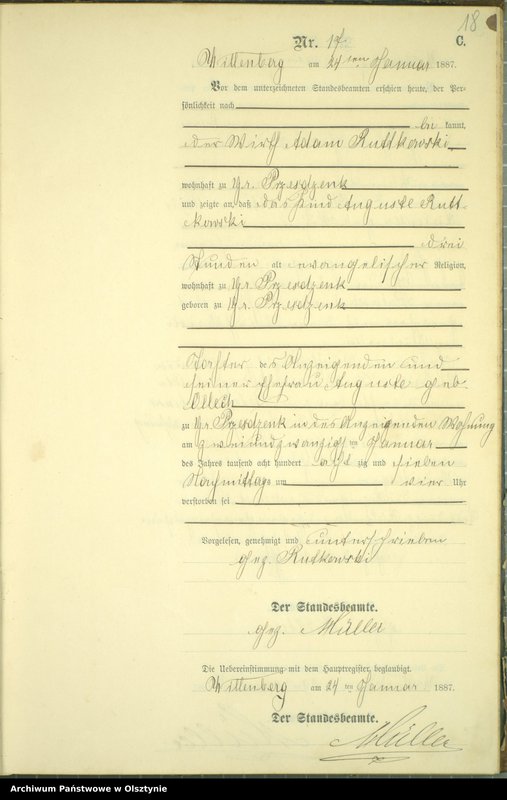 18
Nr. 17. C.
Wittenberg am 24ten Januar 1887.
Vor dem unterzeichneten Standesbeamten erschien heute, der Per-
sönlichkeit nach
bekannt,
der Wirth Adam Ruttkowski
wohnhaft zu Gr. Przesdzenk
und zeigte an, daß das Kind Auguste Rutt-
kowski
drei
Stunden alt evangelischer Religion,
wohnhaft zu Gr. Przesdzenk
geboren zu Gr. Przesdzenk
Tochter des Anzeigenden und
seiner Ehefrau Auguste geb.
Ollech
zu Gr. Przesdzenk in des Anzeigenden Wohnung
am zweiundzwanzigsten Januar
des Jahres tausend acht hundert achtzig und sieben
Nachmittags um vier Uhr
verstorben sei
Vorgelesen, genehmigt und unterschrieben
gez. Rutkowski
Der Standesbeamte.
gez. Müller
Die Uebereinstimmung mit dem Hauptregister beglaubigt.
Wittenberg am 24ten Januar 1887.
Der Standesbeamte.
Müller
Archiwum Państwowe w Olsztynie